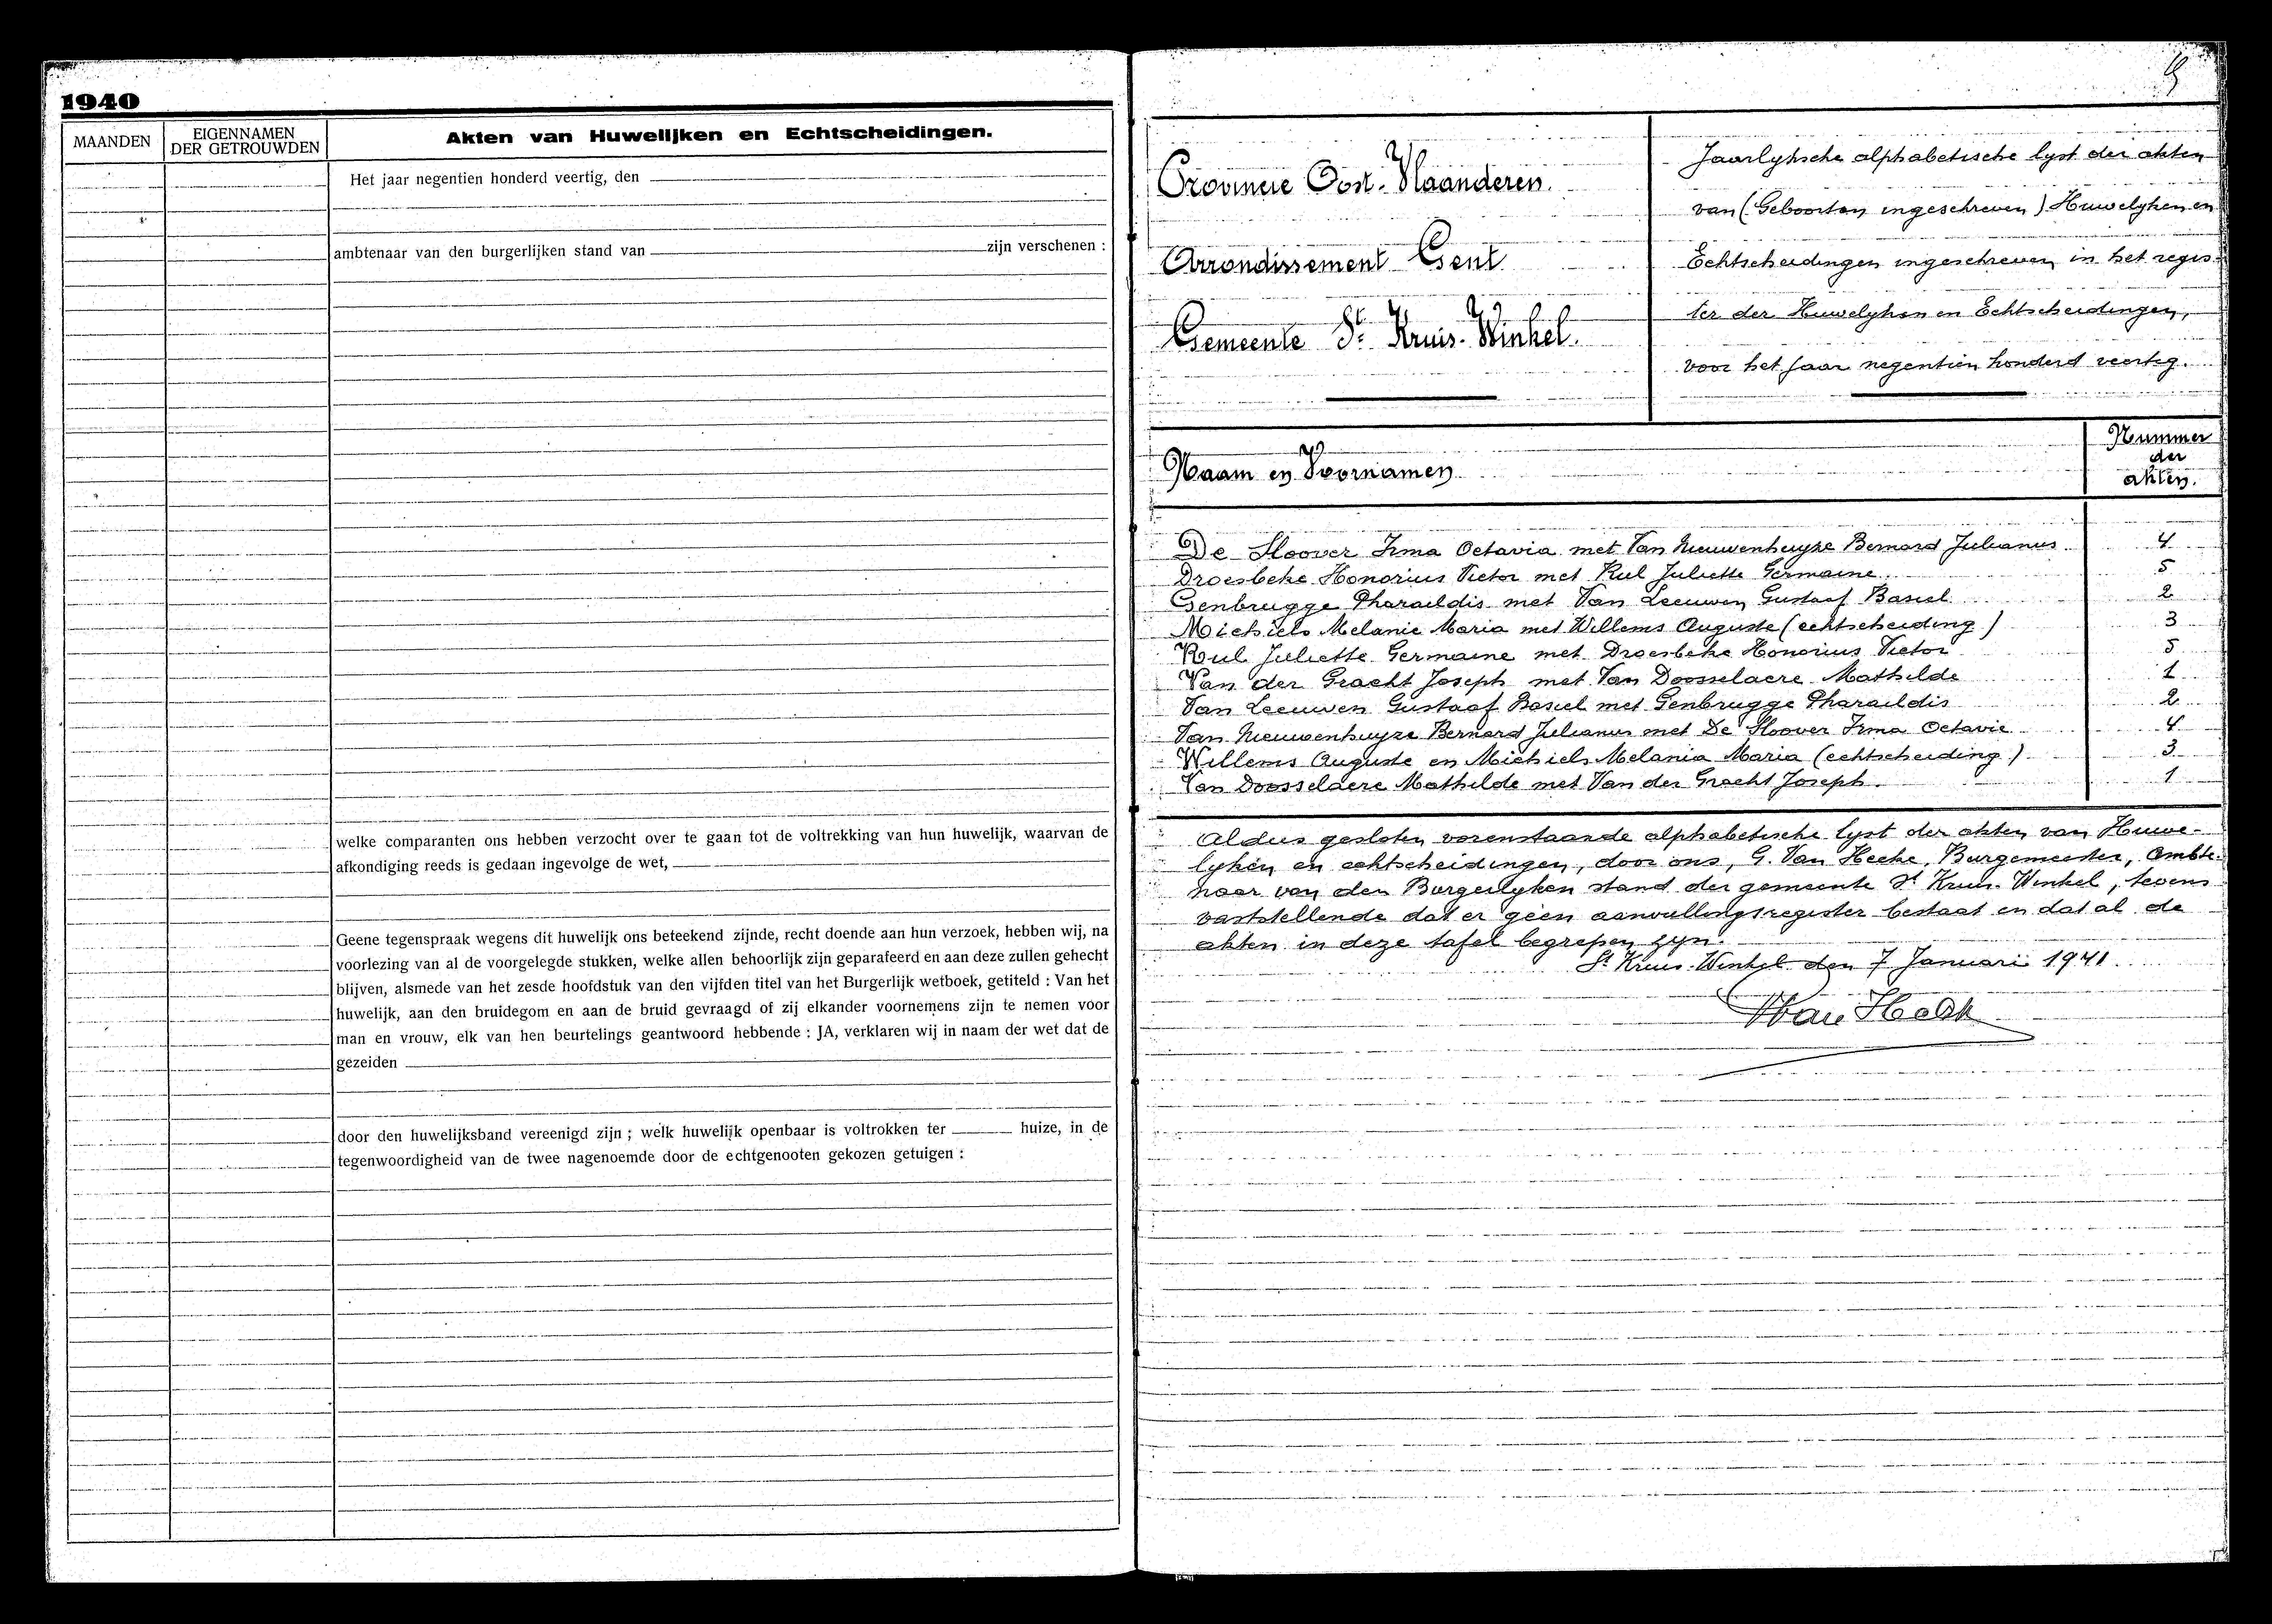 1940
MAANDEN
EIGENNAMEN
DER GETROUWDEN
Akten van Huwelijken en Echtscheidingen.
Het jaar negentien honderd veertig, den
ambtenaar van den burgerlijken stand van zijn verschenen :
welke comparanten ons hebben verzocht over te gaan tot de voltrekking van hun huwelijk, waarvan de
afkondiging reeds is gedaan ingevolge de wet,
Geene tegenspraak wegens dit huwelijk ons beteekend zijnde, recht doende aan hun verzoek, hebben wij, na
voorlezing van al de voorgelegde stukken, welke allen behoorlijk zijn geparafeerd en aan deze zullen gehecht
blijven, alsmede van het zesde hoofdstuk van den vijfden titel van het Burgerlijk wetboek, getiteld : Van het
huwelijk, aan den bruidegom en aan de bruid gevraagd of zij elkander voornemens zijn te nemen voor
man en vrouw, elk van hen beurtelings geantwoord hebbende : JA, verklaren wij in naam der wet dat de
gezeiden
door den huwelijksband vereenigd zijn ; welk huwelijk openbaar is voltrokken ter huize, in de
tegenwoordigheid van de twee nagenoemde door de echtgenooten gekozen getuigen :
Provincie Oost-Vlaanderen.
Arrondissement Gent
Gemeente St Kruis-Winkel.
Jaarlyksche alphabetische lyst der akten
van (Geboorten ingeschreven) Huwelyken en
Echtscheidingen ingeschreven in het regis-
ter der Huwelyken en Echtscheidingen,
voor het jaar negentien honderd veertig.
Naam en Voornamen
Nummer
der
akten.
De Sloover Irma Octavia met Van Nieuwenhuyze Bernard Julianus 4
Droesbeke Honorius Victor met Rul Juliette Germaine 5
Genbrugge Pharaïldis met Van Leeuwen Gustaaf Basiel 2
Michiels Melanie Maria met Willems Auguste (echtscheiding) 3
Rul Juliette Germaine met Droesbeke Honorius Victor 5
Van der Gracht Joseph met Van Doosselaere Mathilde 1
Van Leeuwen Gustaaf Basiel met Genbrugge Pharaildis 2
Van Nieuwenhuyze Bernard Julianus met De Sloover Irma Octavie 4
Willems Auguste en Michiels Melania Maria (echtscheiding) 3
Van Doosselaere Mathilde met Van der Gracht Joseph. 1
Aldus gesloten vorenstaande alphabetische lyst der akten van Huwe-
lyken en echtscheidingen, door ons, G. Van Hecke, Burgemeester, Ambte-
naar van den Burgerlyken stand der gemeente St Kruis-Winkel, tevens
vaststellende dat er geen aanvullingsregister bestaat en dat al de
akten in deze tafel begrepen zyn.
St Kruis-Winkel den 7 Januari 1941.